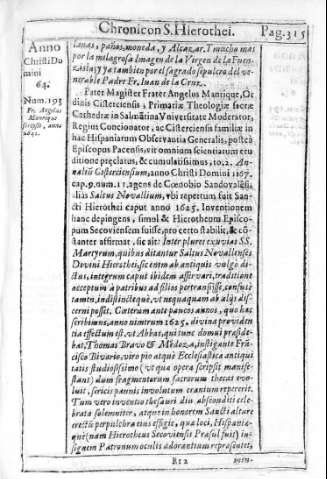 Chronicon S. Hierothei.
Pag. 315
Anno
Christi Do
mini
64.
Num. 193
Fr. Angelus
Manrique
lanas, paños, moneda, y Alcazar. T mucho mas
por la milagrosa Imagen de la Virgen de la Fuen-
zisla; y ya tambien por el sagrado sepulcro del ve-
nerable Padre Fr. Iuan de la Cruz.
Pater Magister Frater Angelus Manrique, Or
dinis Cisterciensis, Primariæ Theologiæ sacræ
Cathedræ in Salmātina Vniuersitate Moderator,
Regius Concionator, ac Cisterciensis familiæ in
hac Hispaniarum Obseruantia Generalis, posteà
Episcopus Pacensis, vir omnium scientiarum eru
ditione præclarus, & cumulatissimus, to. 2. An-
nalium Cisterciensium, anno Christi Domini 1167.
cap. 9. num. 11. agens de Cœnobio Sandovalēsi,
aliàs Saltus Nouallium, vbi repertum fuit San-
cti Hierothei caput anno 1625. Inuentionem
hanc depingens, simul & Hierotheum Episco-
pum Secouiensem fuisse, pro certo stabilit, & cō-
stanter affirmat, sic ait: Inter plures exuuias SS.
Martyrum, quibus ditantur Saltus Nouallenses
Divini Hierothei, sic enim ab antiquis vulgò di-
ctus, integrum caput ibidem asseruari, traditione
acceptum à patribus ad filios pertransisse, confusè
tamen, indistinctè què, vt nequaquam ab alijs dis-
cerni posset. Cæterum ante paucos annos, quo hæc
scribimus, anno nimirum 1625. diuina prouiden
tia effectum est, vt Abbas, qui tunc domui præside-
bat, Thomas Brauo & Mēdoza, instigante Frā-
cisco Biuario, viro pio atquè Ecclesiastica antiqui
tatis studiosissimo (vt qua opera scripsit manife-
stant) dum fragmentorum sacrorum thecas vo-
luit, sericis pannis inuolutum cranium reperiret.
Tum vero inuentio thesauri diu absconditi cele-
brata solemniter, atque in honorem Sancti altare
erectū perpulchra eius effigie, qua loci, Hispania-
què (nam Hierotheus Secouiensis Præsul fuit) in-
signem Patronum oculis adorantium repræsentet,
Rr 2